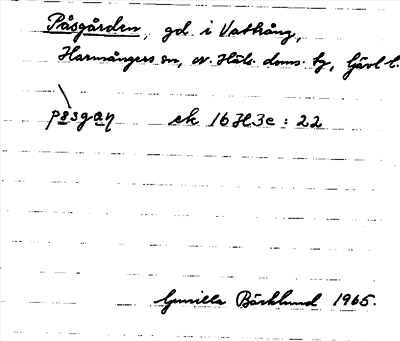 Påsgården, gd. i Vattrång,
Harmångers sn, n. Häls. doms. tg, Gävl. l.
påsgaṇ ek 16H3e : 22
Gunilla Bäcklund 1965.